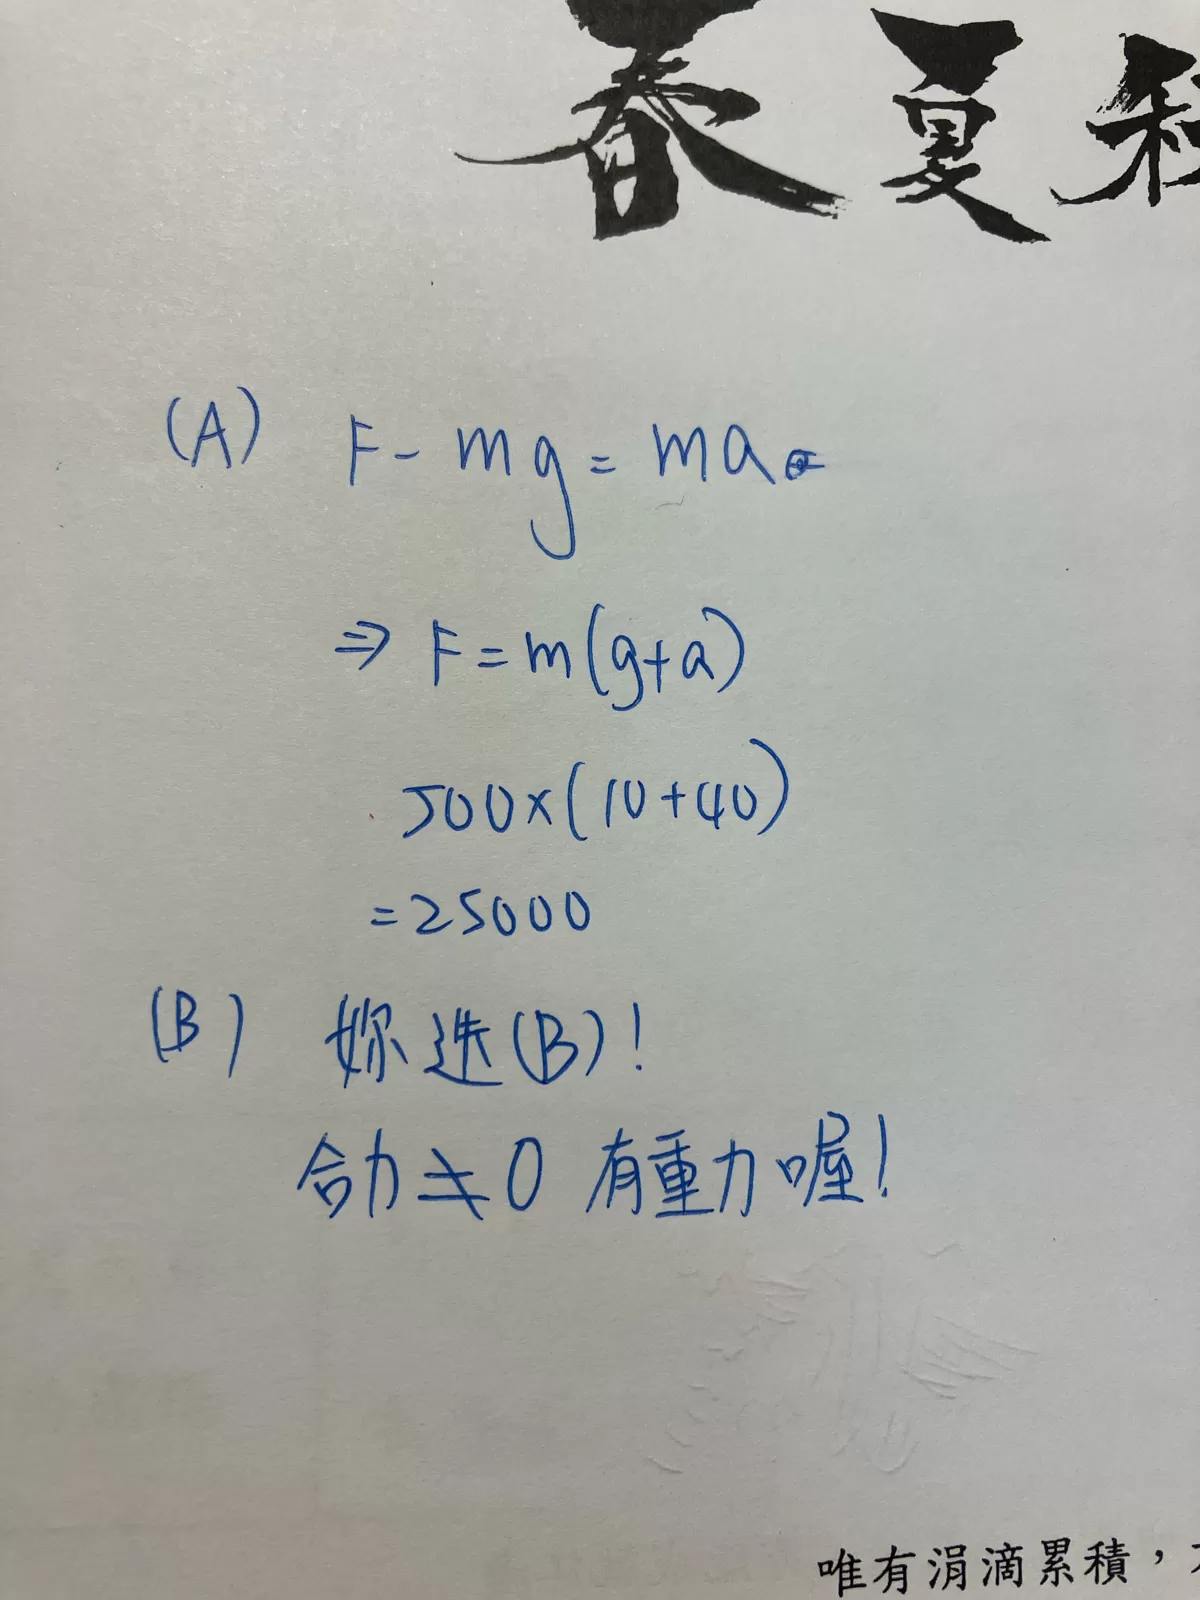 春夏秋
(A) F - mg = ma
⇒ F = m(g+a)
500×(10+40)
=25000
(B) 妳选(B)!
合力≠0 有重力喔!
唯有涓滴累積，